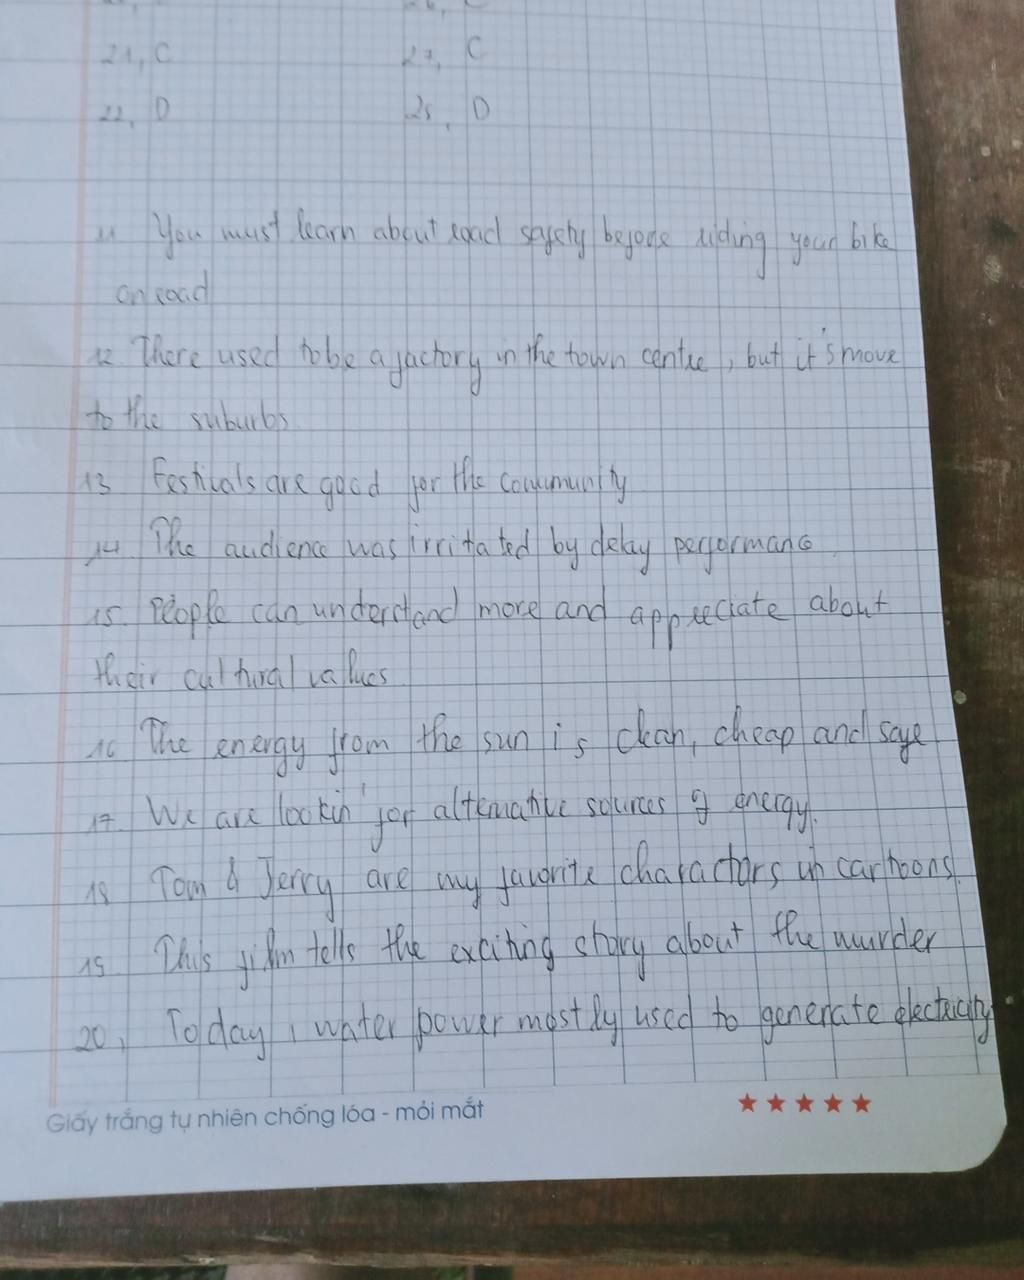 21, C 27, C
22, D 28, D
11 You must learn about road safety before riding your bike
on road
12. There used to be a factory in the town centre, but it's move
to the suburbs.
13 Festivals are good for the community
14. The audience was irritated by delay performanc
15. People can understand more and appreciate about
their cultural values
16 The energy from the sun is clean, cheap and safe
17. We are lookin' for alternative sources of energy.
18 Tom & Jerry are my favorite charactors in cartoons.
19 This film tells the exciting story about the murder
20, Today, water power mostly used to generate electricity
Giấy trắng tự nhiên chống lóa - mỏi mắt